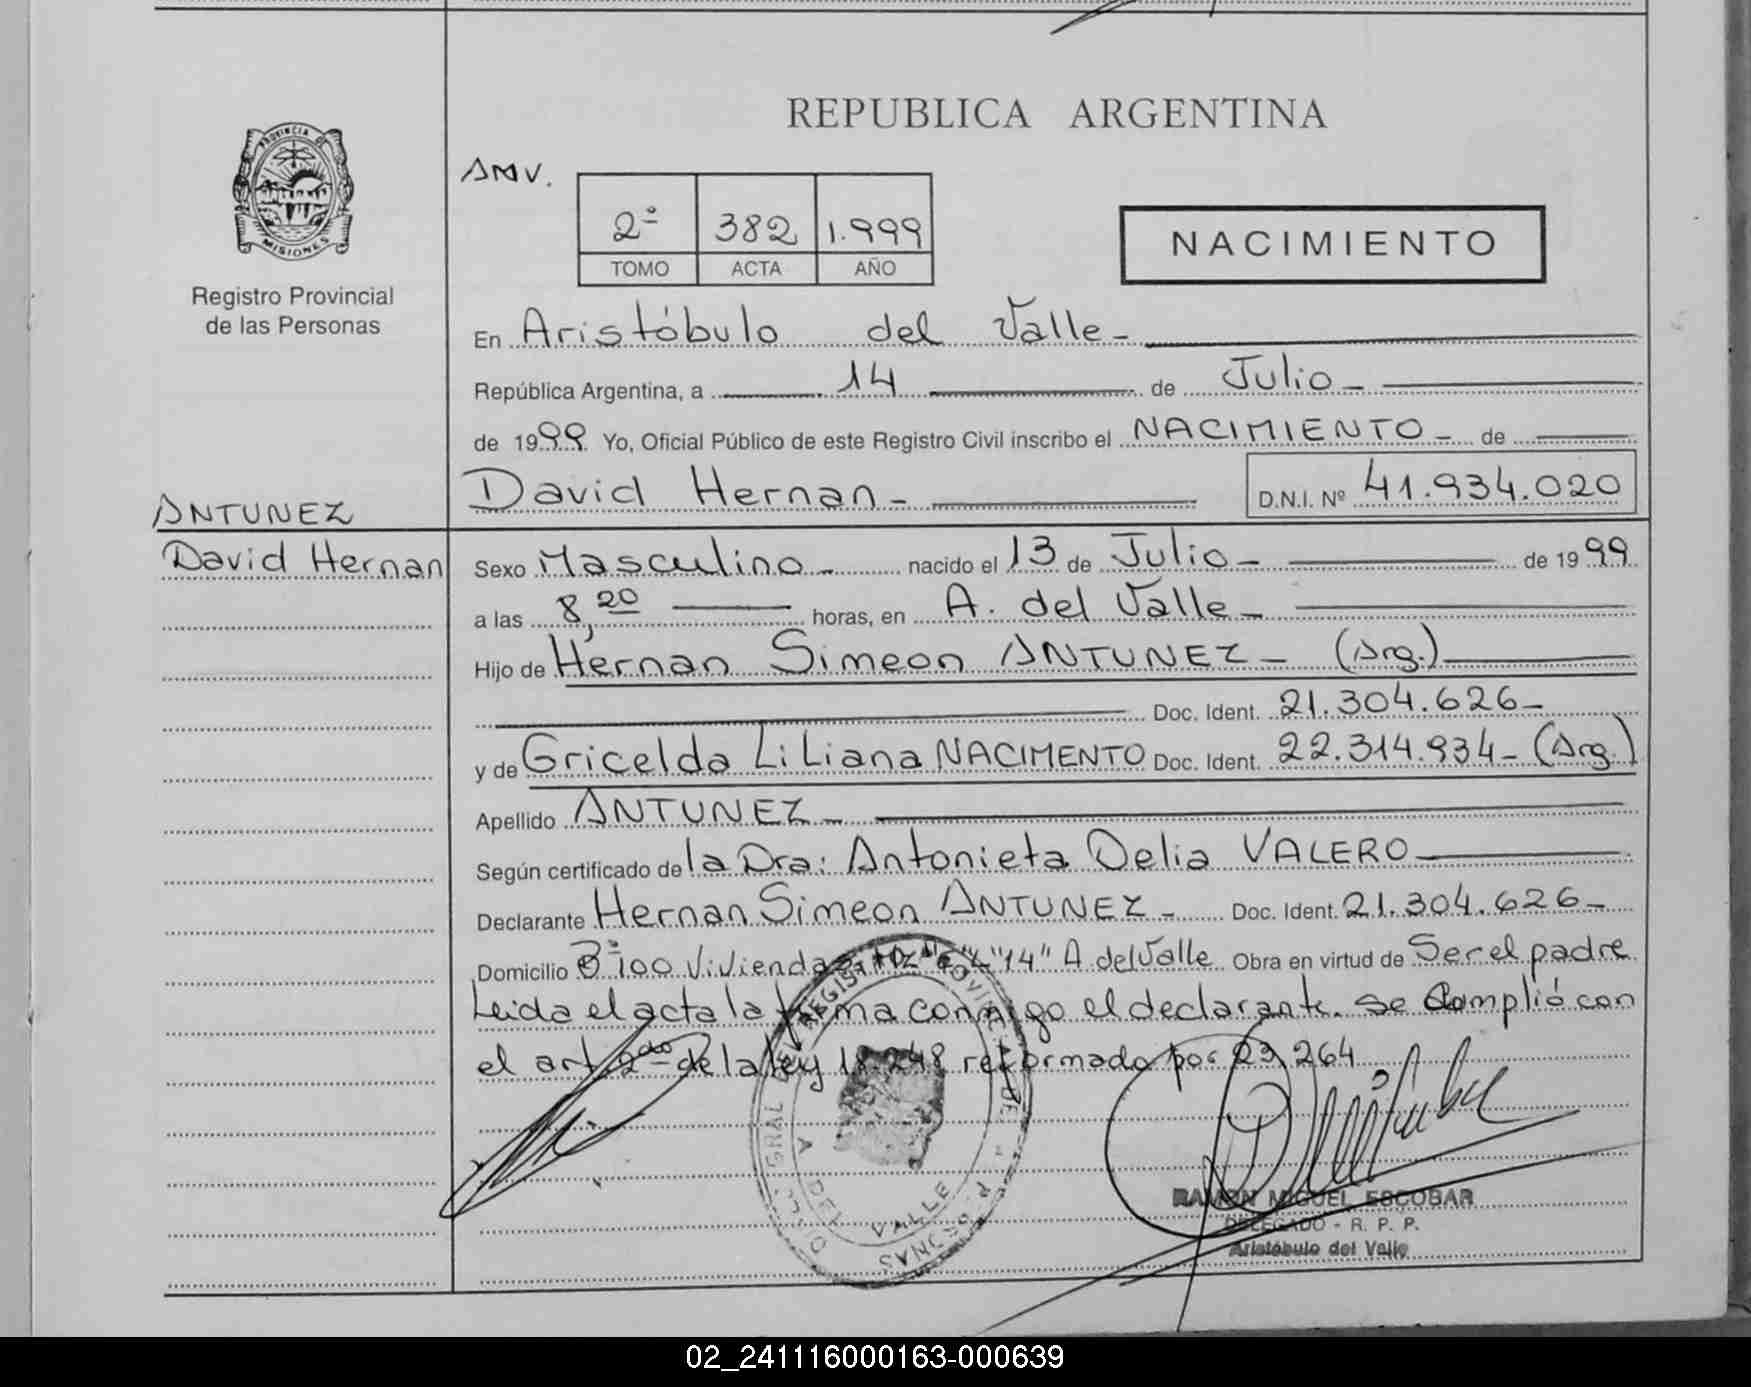 REPUBLICA ARGENTINA
PROVINCIA DE
MISIONES
Registro Provincial
de las Personas
AMV.
2º 382 1.999
TOMO ACTA AÑO
NACIMIENTO
En Aristóbulo del Valle-
República Argentina, a 14 de Julio-
de 1999 Yo, Oficial Público de este Registro Civil inscribo el NACIMIENTO- de
David Hernan- D.N.I. Nº 41.934.020
ANTUNEZ
David Hernan
Sexo Masculino- nacido el 13 de Julio- de 1999
a las 8,20 horas, en A. del Valle-
Hijo de Hernan Simeon ANTUNEZ- (Arg.)
Doc. Ident. 21.304.626-
y de Gricelda Liliana NACIMENTO Doc. Ident. 22.314.934- (Arg.)
Apellido ANTUNEZ-
Según certificado de la Dra: Antonieta Delia VALERO
Declarante Hernan Simeon ANTUNEZ- Doc. Ident. 21.304.626-
Domicilio Bº 100 Viviendas "14" A. del Valle Obra en virtud de Ser el padre
Leida el acta la firma conmigo el declarante. se Cumplió con
el art 2do de la ley 18.248 reformado por 23.264
A DEL VALLE
RAMON MIGUEL ESCOBAR
DELEGADO - R. P. P.
Aristóbulo del Valle
02_241116000163-000639